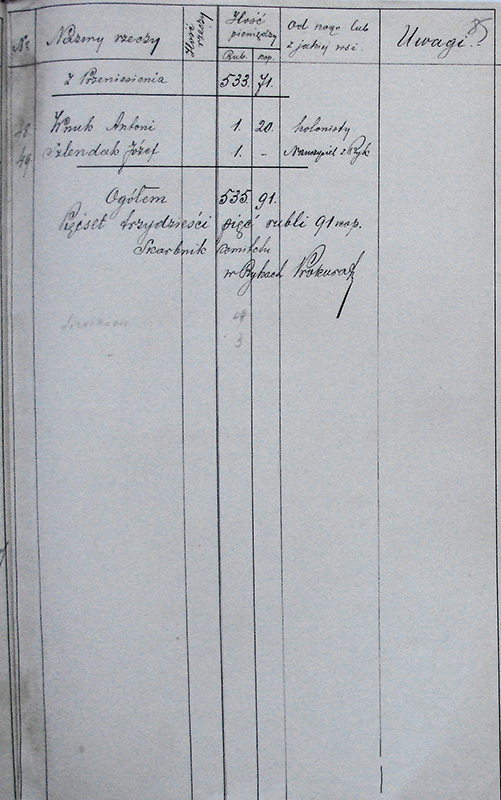 8
№ Nazwy rzeczy Ilość rzeczy Ilość pieniędzy Rub. kop. Od kogo lub z jakiej wsi Uwagi.
Z Przeniesienia 533. 71.
48. Wnuk Antoni 1. 20. kolonisty
49. Szlendak Józef 1. - Nauczyciel z Ryk
Ogółem 535. 91.
Pięćset trzydzieści pięć rubli 91 kop.
Skarbnik komitetu
w Rykach Prokurat